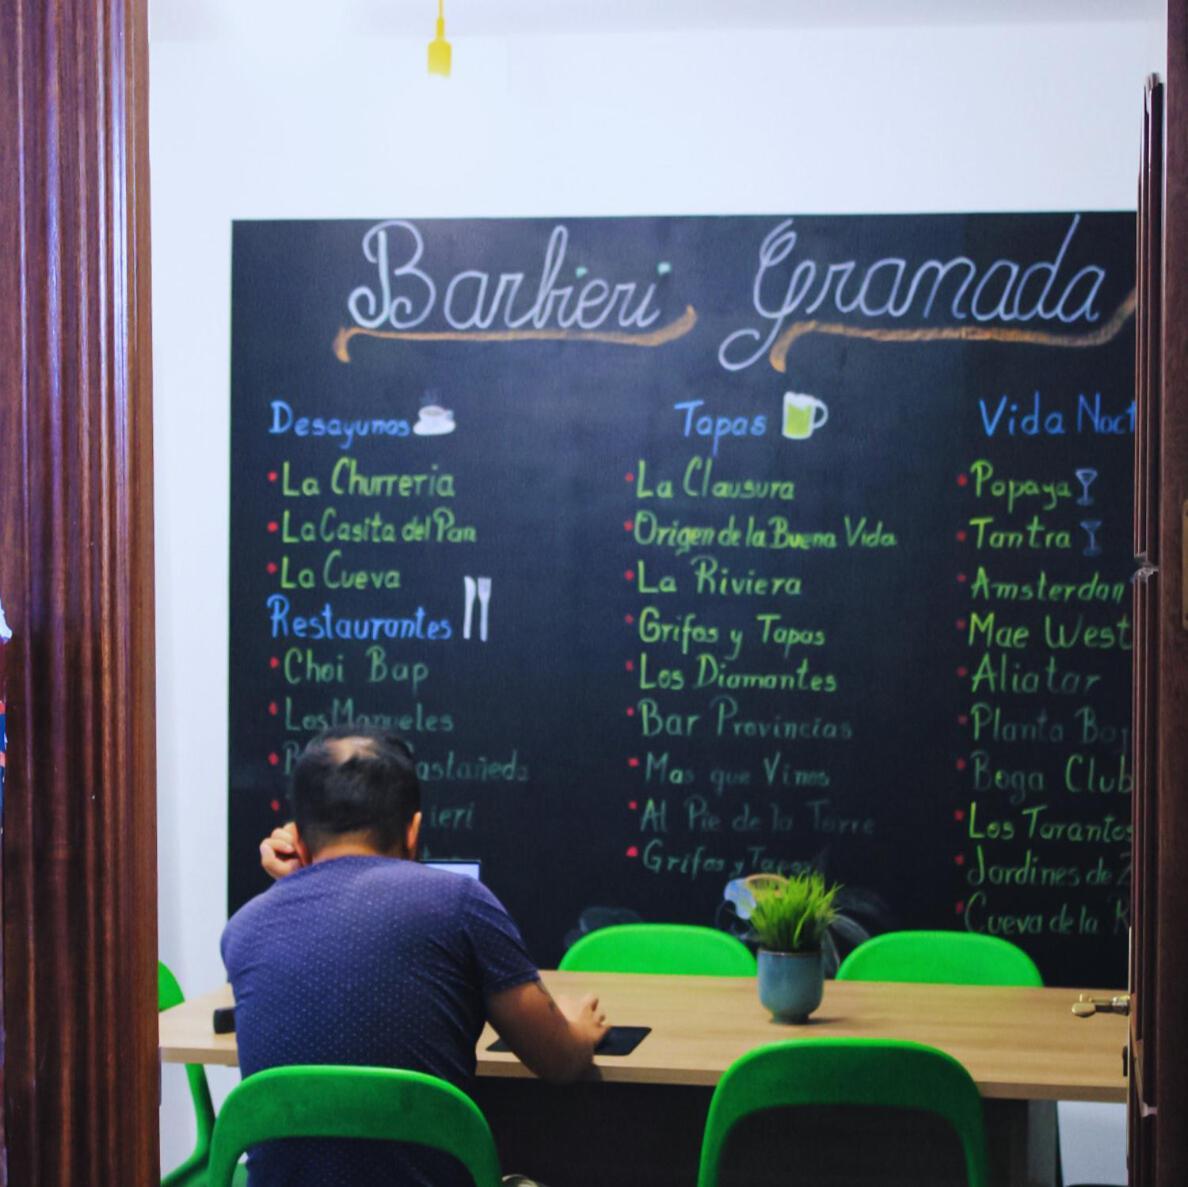 Barbieri Granada
Desayunos
La Churreria
La Casita del Pan
La Cueva
Restaurantes
Choi Bap
Los Manueles
Tapas
La Clausura
Origen de la Buena Vida
La Riviera
Grifos y Tapas
Los Diamantes
Bar Provincias
Mas que Vinos
Al Pie de la Torre
Grifos y Tapas
Vida Noct
Popaya
Tantra
Amsterdam
Mae West
Aliatar
Planta Baj
Boga Club
Los Tarantos
Jardines de Z
Cueva de la R